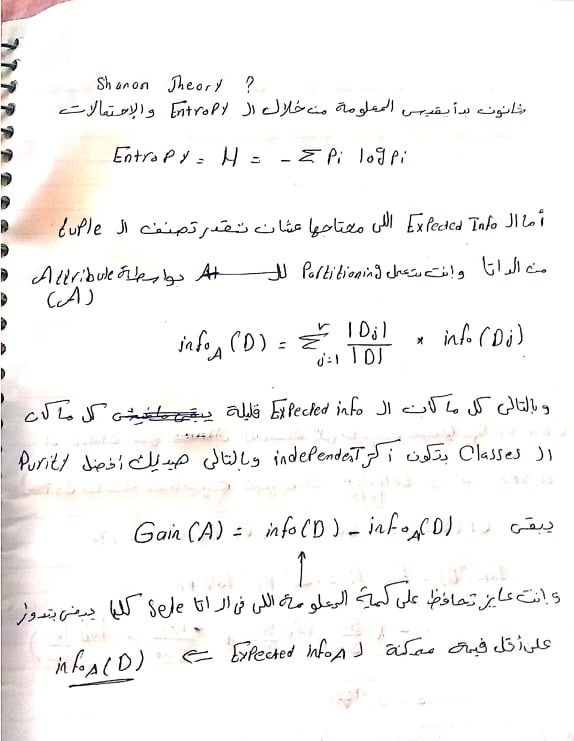 Shanon Theory ?
شانون بدأ يقيس المعلومة من خلال ال Entropy والإحتمالات
Entropy = H = - Σ Pi log Pi
أما ال Expected Info اللى محتاجها عشان تقدر تصنف ال tuple
من الداتا وانت بتعمل Partitioning لل بواسطة Attribute
(A)
info_A (D) = Σ_{j=1}^{v} |Dj| / |D| * info (Dj)
وبالتالى كل ما كانت ال Expected info قليلة كل ما كان
ال Classes بتكون أكثر independent وبالتالى هيديك أفضل Purity
يبقى Gain (A) = info (D) - info_A (D)
وانت عايز تحافظ على كمية المعلومة اللى فى الداتا كلها يبقى بتدور
على أقل قيمة ممكنة ل Expected info_A ⇐ info_A (D)